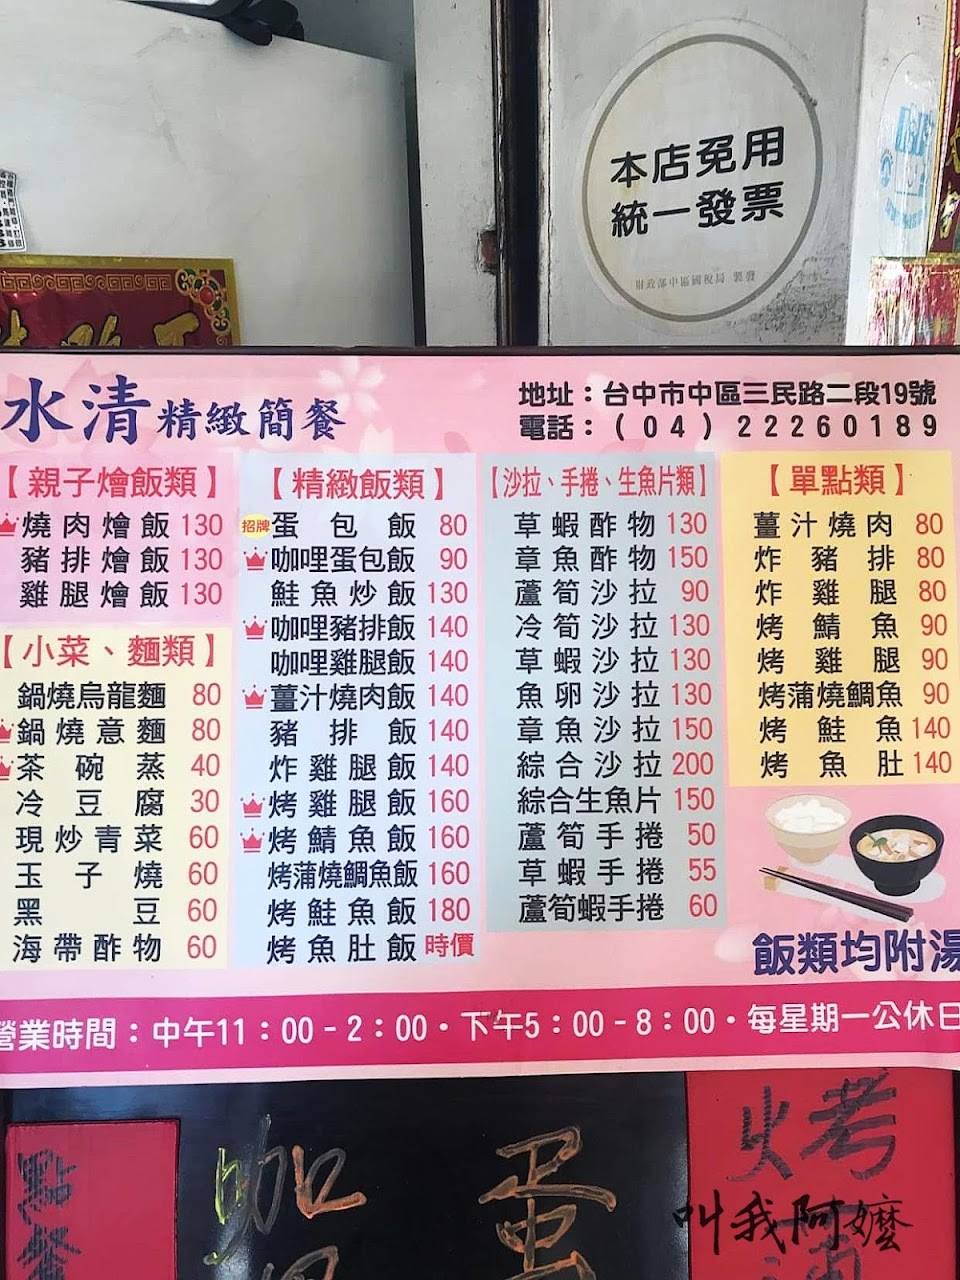 本店免用
統一發票
財政部中區國稅局 製發
水清精緻簡餐
地址：台中市中區三民路二段19號
電話：(04) 22260189
【親子燴飯類】
燒肉燴飯 130
豬排燴飯 130
雞腿燴飯 130
【小菜、麵類】
鍋燒烏龍麵 80
鍋燒意麵 80
茶碗蒸 40
冷豆腐 30
現炒青菜 60
玉子燒 60
黑豆 60
海帶酢物 60
【精緻飯類】
招牌 蛋包飯 80
咖哩蛋包飯 90
鮭魚炒飯 130
咖哩豬排飯 140
咖哩雞腿飯 140
薑汁燒肉飯 140
豬排飯 140
炸雞腿飯 140
烤雞腿飯 160
烤鯖魚飯 160
烤蒲燒鯛魚飯 160
烤鮭魚飯 180
烤魚肚飯 時價
【沙拉、手捲、生魚片類】
草蝦酢物 130
章魚酢物 150
蘆筍沙拉 90
冷筍沙拉 130
草蝦沙拉 130
魚卵沙拉 130
章魚沙拉 150
綜合沙拉 200
綜合生魚片 150
蘆筍手捲 50
草蝦手捲 55
蘆筍蝦手捲 60
【單點類】
薑汁燒肉 80
炸豬排 80
炸雞腿 80
烤鯖魚 90
烤雞腿 90
烤蒲燒鯛魚 90
烤鮭魚 140
烤魚肚 140
飯類均附湯
營業時間：中午11：00-2：00・下午5：00-8：00・每星期一公休日
點餐
咖
蛋
烤
火
叫我阿嬤